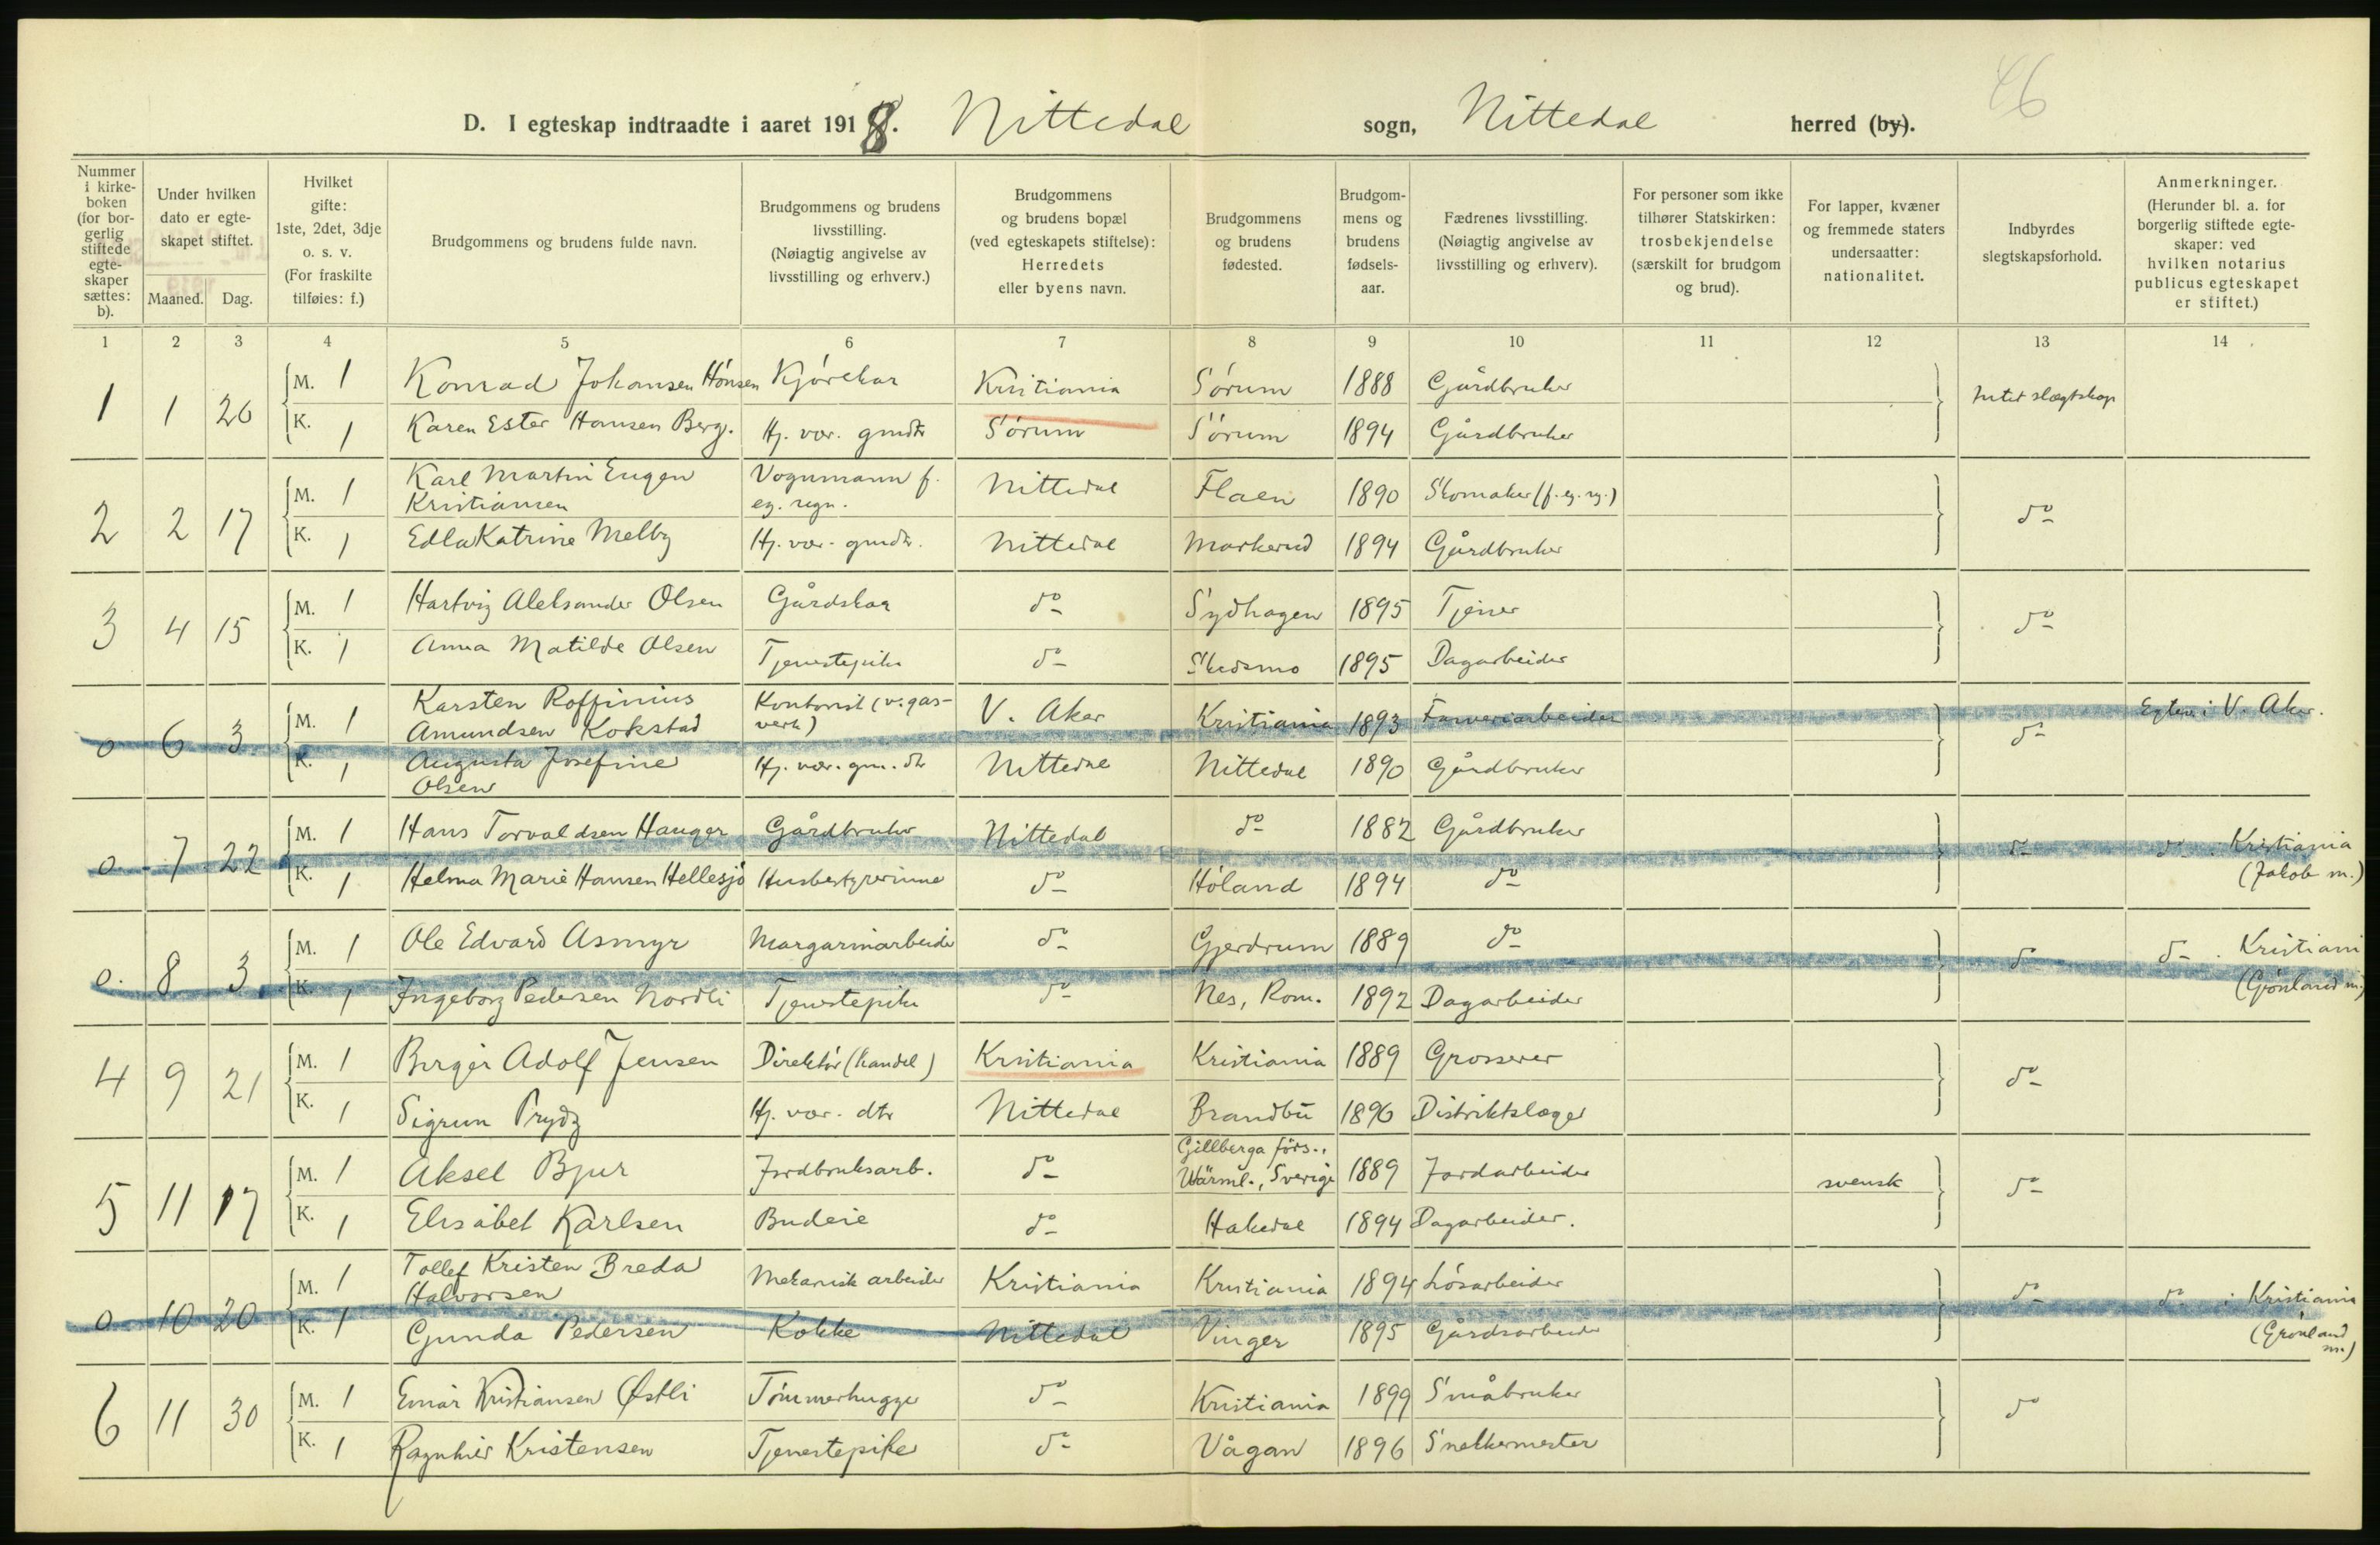 46
D. I egteskap indtraadte i aaret 1918. Nittedal sogn, Nittedal herred (by).
Nummer i kirke-boken (for bor-gerlig stiftede egte-skaper sættes: b).
Under hvilken dato er egte-skapet stiftet.
Maaned. Dag.
Hvilket gifte: 1ste, 2det, 3dje o. s. v. (For fraskilte tilføies: f.)
Brudgommens og brudens fulde navn.
Brudgommens og brudens livsstilling. (Nøiagtig angivelse av livsstilling og erhverv.)
Brudgommens og brudens bopæl (ved egteskapets stiftelse): Herredets eller byens navn.
Brudgommens og brudens fødested.
Brudgom-mens og brudens fødsels-aar.
Fædrenes livsstilling. (Nøiagtig angivelse av livsstilling og erhverv).
For personer som ikke tilhører Statskirken: trosbekjendelse (særskilt for brudgom og brud).
For lapper, kvæner og fremmede staters undersaatter: nationalitet.
Indbyrdes slegtskapsforhold.
Anmerkninger. (Herunder bl. a. for borgerlig stiftede egte-skaper: ved hvilken notarius publicus egteskapet er stiftet.)
1 2 3 4 5 6 7 8 9 10 11 12 13 14
1 1 26 M. 1 Konrad Johansen Hónsen Kjórekar Kristiania Sórum 1888 Gårdbruker Intet slægtskap
K. 1 Karen Ester Hansen Berg. Hj. vær. gmdtr Sórum Sórum 1894 Gårdbruker
2 2 17 M. 1 Karl Martin Eugen Kristiansen Vognmann f. eg. regn. Nittedal Flaen 1890 Skomaker (f. eg. rg.) do
K. 1 Edla Katrine Melby Hj. vær. gmdtr. Nittedal Markerud 1894 Gårdbruker
3 4 15 M. 1 Hartvig Aleksander Olsen Gårdskar do Sydhagen 1895 Tjener do
K. 1 Anna Matilde Olsen Tjenestepike do Skedsmo 1895 Dagarbeider
0 6 3 M. 1 Karsten Roffinius Amundsen Kokstad Kontorist (v. gas-verk) V. Aker Kristiania 1893 Farveriarbeider do Egtev. i V. Aker.
K. 1 Augusta Josefine Olsen Hj. vær. gm. dtr Nittedal Nittedal 1890 Gårdbruker
0 7 22 M. 1 Hans Torvaldsen Hauger Gårdbruker Nittedal do 1882 Gårdbruker do do . Kristiania
K. 1 Helma Marie Hansen Hellesjó Husbestyrerinne do Hóland 1894 do (Jakob m.)
0. 8 3 M. 1 Ole Edvard Asmyr Margarinarbeider do Gjerdrum 1889 do do do . Kristiani
K. 1 Ingeborg Pedersen Nordli Tjenestepike do Nes, Rom. 1892 Dagarbeider (Grónland m.)
4 9 21 M. 1 Birger Adolf Jensen Direktór (handel) Kristiania Kristiania 1889 Grosserer do
K. 1 Sigrun Prydz Hj. vær. dtr Nittedal Brandbu 1896 Distriktslæge
5 11 17 M. 1 Aksel Bjur Jordbruksarb. do Gillberga förs., Wärml., Sverige 1889 Jordarbeider svensk do
K. 1 Elisabet Karlsen Budeie do Hakedal 1894 Dagarbeider.
0 10 20 M. 1 Tollef Kristen Breda Halvorsen Mekanisk arbeider Kristiania Kristiania 1894 Lósarbeider do do i Kristiania
K. 1 Gunda Pedersen Kokke Nittedal Vinger 1895 Gårdsarbeider (Grónland m.)
6 11 30 M. 1 Einar Kristiansen Østli Tómmerhugger do Kristiania 1899 Småbruker do
K. 1 Ragnhild Kristensen Tjenestepike do Vågan 1896 Snekkermester